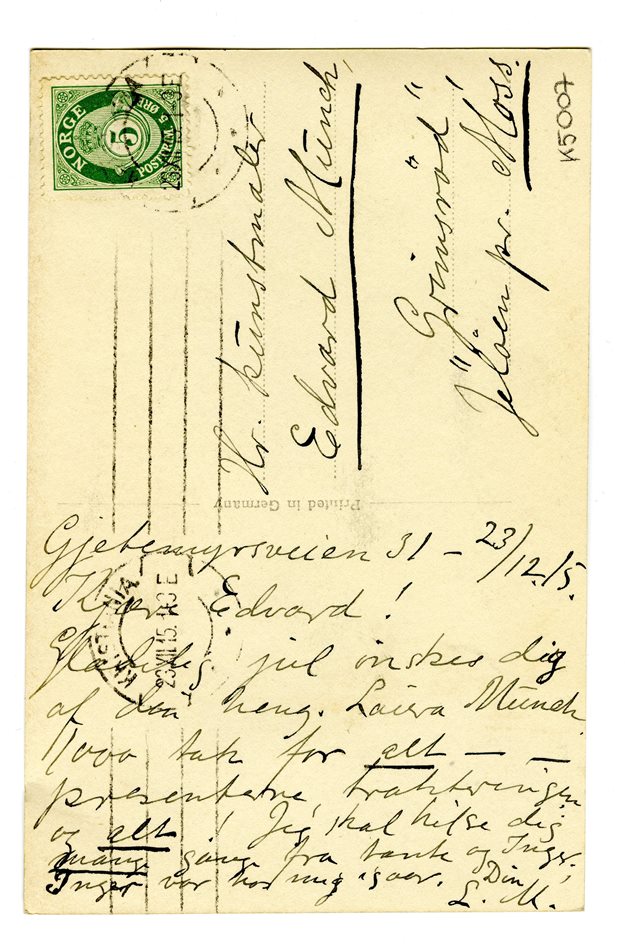 NORGE
5
POSTFRIM. 5 ØRE
K5007
Hr. Kunstmaler
Edvard Munch,
"Grimsrød"!
Jeløen pr. Moss.
Printed in Germany
KRISTIANIA
23 XII 15. 11-12 E
Gjetemyrsveien 31 – 23/12.15.
Kjære Edvard!
Glædelig jul ønskes dig
af din heng. Laura Munch.
1/000 tak for alt — —
presenterne, trakteringen
og alt! Jeg skal hilse dig
mange gange fra tante og Inger.
Inger var hos mig igaar. Din
L. M.